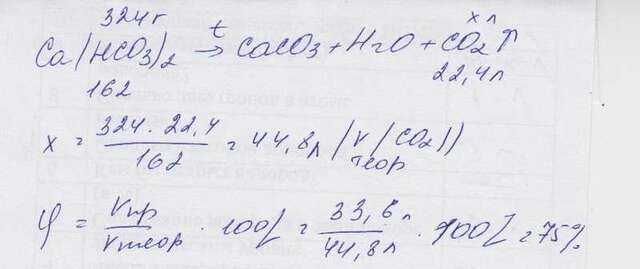 324г t x л
Ca(HCO3)2 → CaCO3 + H2O + CO2↑
162 22,4л
x = 324 · 22,4 / 162 = 44,8л (V(CO2))
теор
φ = Vпр / Vтеор · 100% = 33,6 л / 44,8 л · 100% = 75%